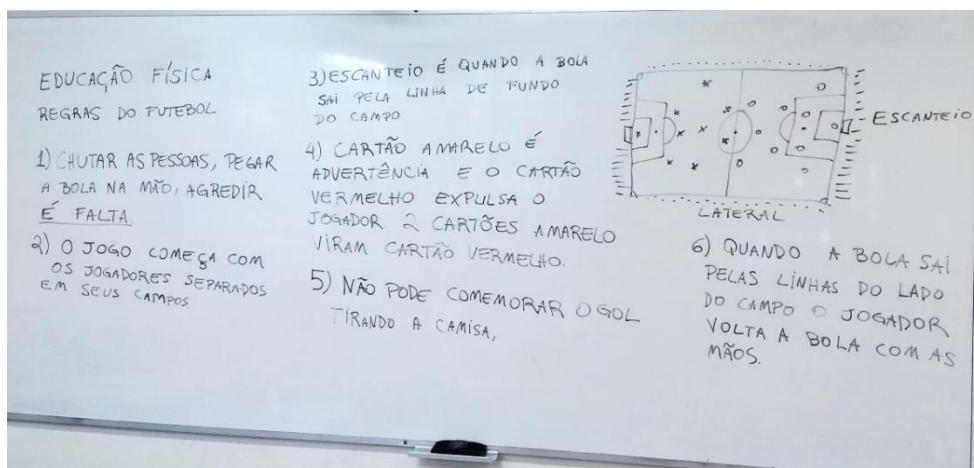 EDUCAÇÃO FÍSICA
REGRAS DO FUTEBOL
1) CHUTAR AS PESSOAS, PEGAR
A BOLA NA MÃO, AGREDIR
É FALTA.
2) O JOGO COMEÇA COM
OS JOGADORES SEPARADOS
EM SEUS CAMPOS
3) ESCANTEIO É QUANDO A BOLA
SAI PELA LINHA DE FUNDO
DO CAMPO
4) CARTÃO AMARELO É
ADVERTÊNCIA E O CARTÃO
VERMELHO EXPULSA O
JOGADOR 2 CARTÕES AMARELO
VIRAM CARTÃO VERMELHO.
5) NÃO PODE COMEMORAR O GOL
TIRANDO A CAMISA,
ESCANTEIO
LATERAL
6) QUANDO A BOLA SAI
PELAS LINHAS DO LADO
DO CAMPO O JOGADOR
VOLTA A BOLA COM AS
MÃOS.